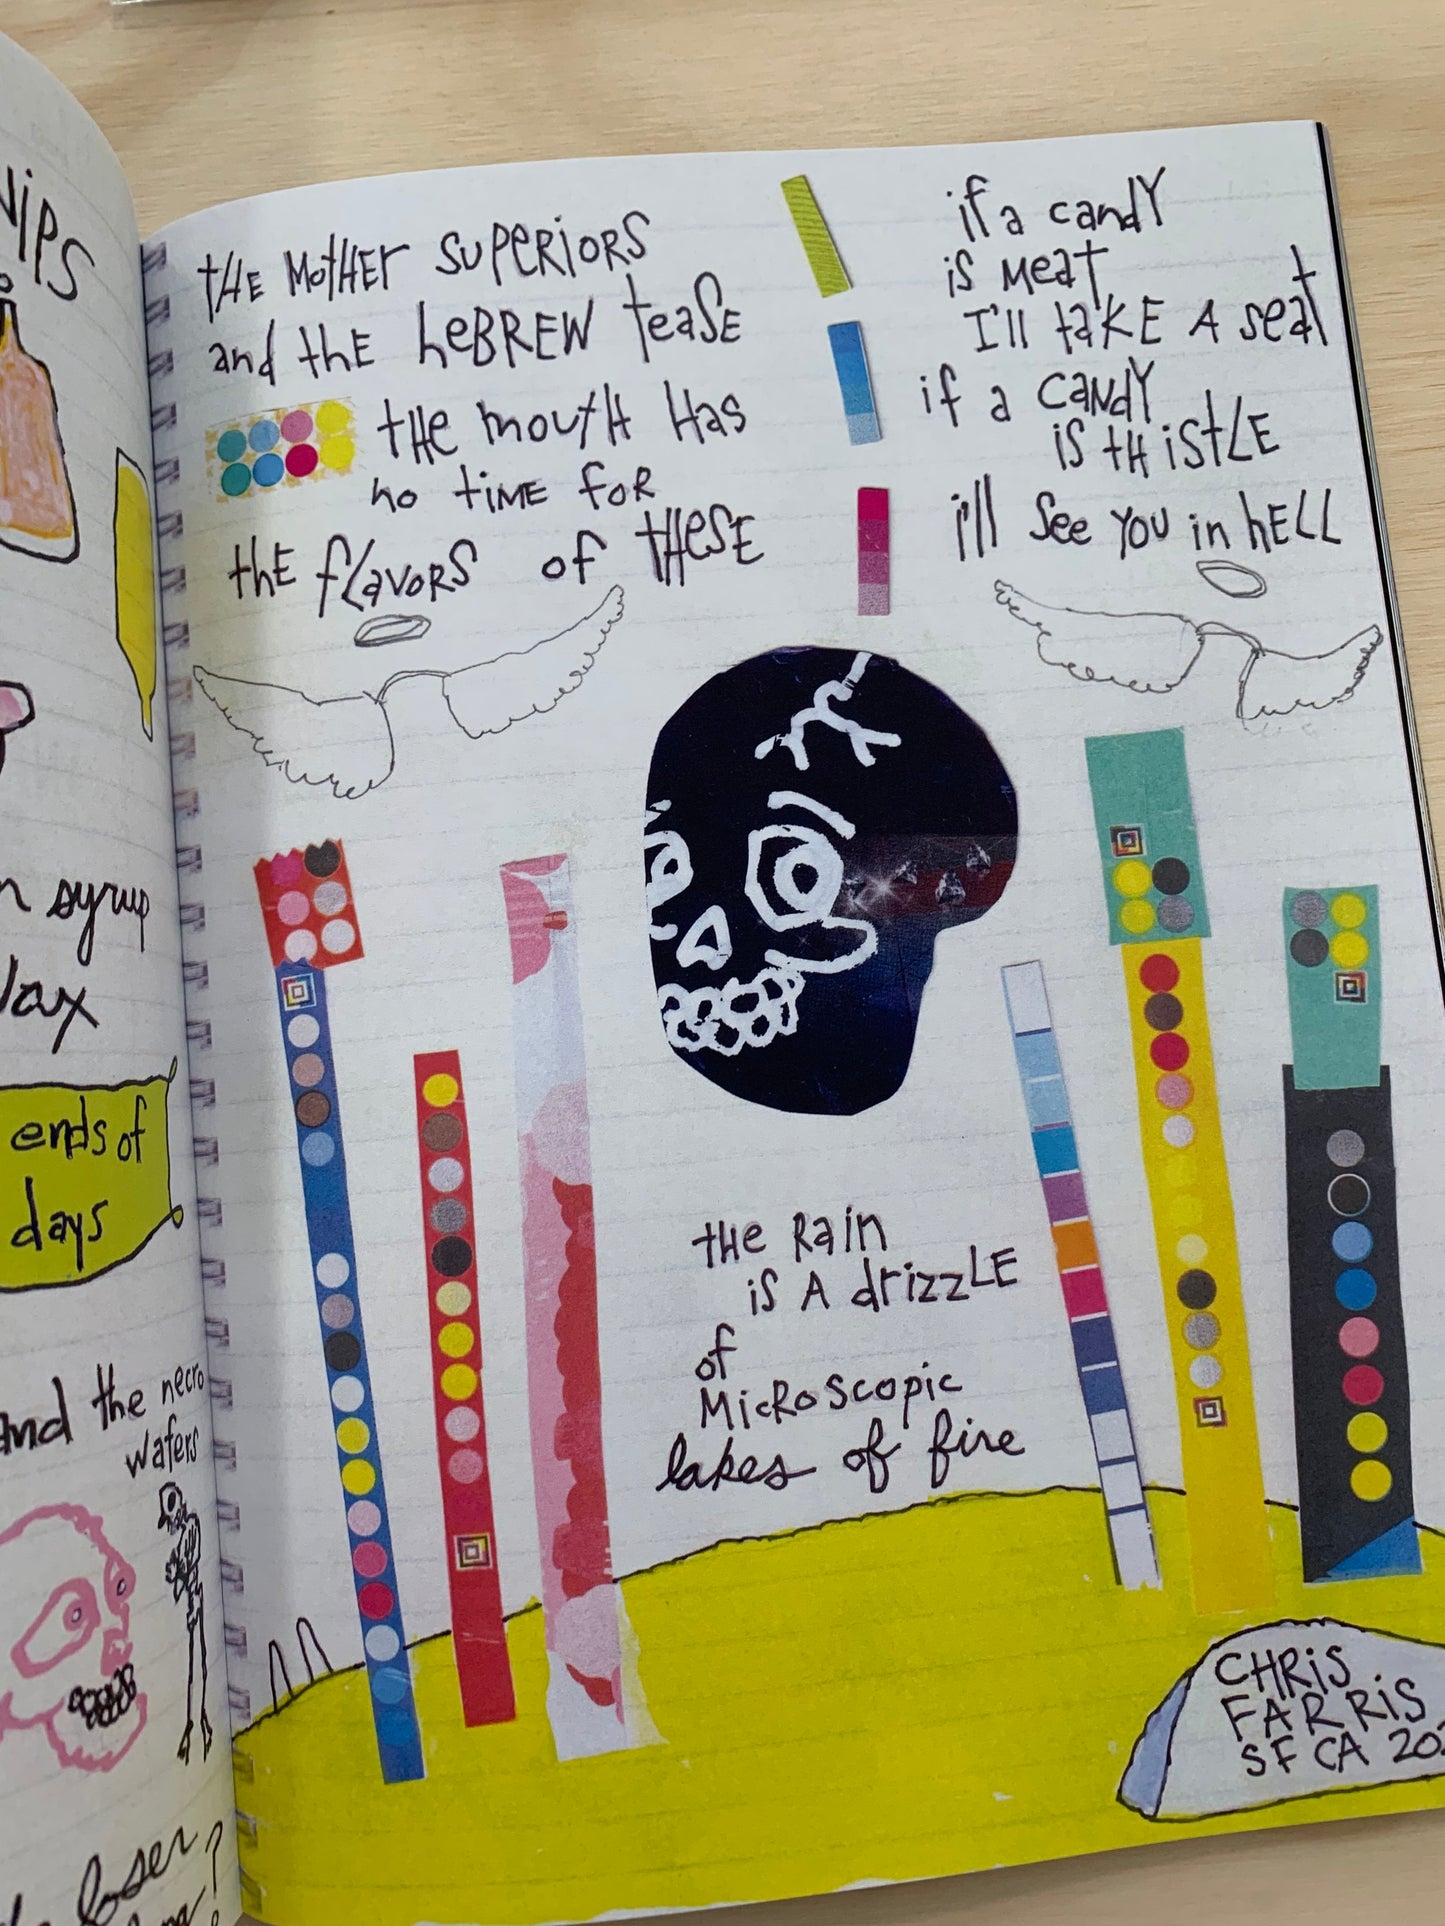 ends of
days
and the necro
wafers
loser
THE MOTHEr SUPERiORS
and thE heBREW teaSE
tHe mouTH Has
no tiME foR
thE flavoRS of THeSE
if a candY
is Meat
I'll taKE A seat
if a caNdY
iS tHistLE
i'll See YOU in hELL
tHe Rain
iS A drizzLE
of
MicRoscopic
lakes of fire
CHRiS
FARRiS
SF CA